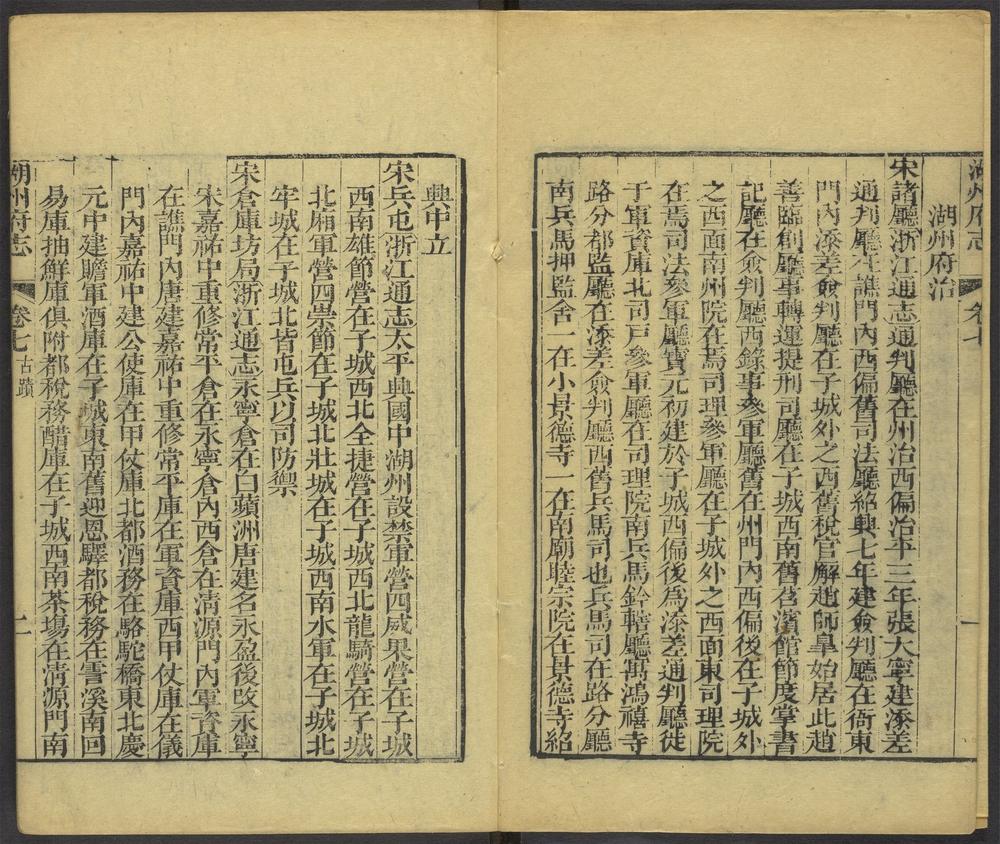 湖州府志
卷七
一
湖州府治
宋諸廳浙江通志通判廳在州治西偏治平三年張大寧建添差
通判廳在譙門內西偏舊司法廳紹興七年建僉判廳在衙東
門內添差僉判廳在子城外之西舊稅官廨趙師臯始居此趙
善臨創廳事轉運提刑司廳在子城西南舊苕濱館節度掌書
記廳在僉判廳西錄事參軍廳舊在州門內西偏後在子城外
之西面南州院在焉司理參軍廳在子城外之西面東司理院
在焉司法參軍廳寶元初建於子城西偏後爲添差通判廳徙
于軍資庫北司戸參軍廳在司理院南兵馬鈐轄廳寓鴻禧寺
路分都監廳在添差僉判廳西舊兵馬司也兵馬司在路分廳
南兵馬押監舍一在小景德寺一在南廟睦宗院在景德寺紹
興中立
宋兵屯浙江通志太平興國中湖州設禁軍營四威果營在子城
西南雄節營在子城西北全捷營在子城西北龍騎營在子城
北廂軍營四崇節在子城北壯城在子城西南水軍在子城北
牢城在子城北皆屯兵以司防禦
宋倉庫坊局浙江通志永寧倉在白蘋洲唐建名永盈後改永寧
宋嘉祐中重修常平倉在永寧倉內西倉在清源門內軍資庫
在譙門內唐建嘉祐中重修常平庫在軍資庫西甲仗庫在儀
門內嘉祐中建公使庫在甲仗庫北都酒務在駱駝橋東北慶
元中建贍軍酒庫在子城東南舊迎恩驛都稅務在霅溪南回
易庫抽鮮庫俱附都稅務醋庫在子城西南茶場在清源門南
湖州府志
卷七 古蹟
二